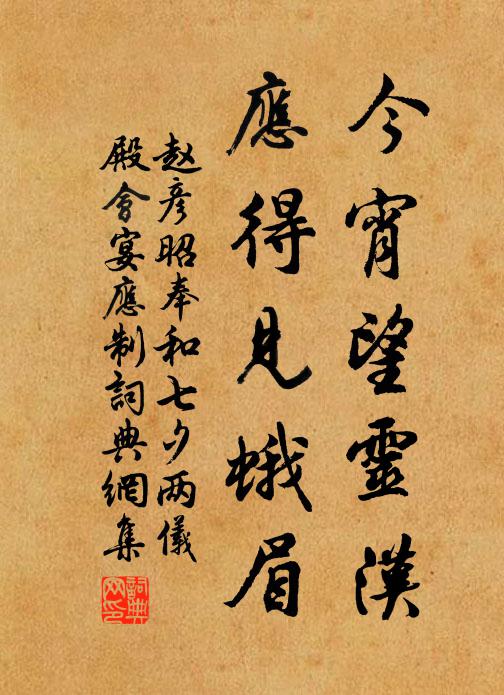 今宵望靈漢
應得見蛾眉
赵彦昭奉和七夕两儀
殿會宴應制詞典網集
詞典网印